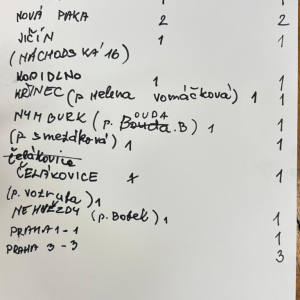 NOVÁ PAKA 2 2
JIČÍN 1 1
(NÁCHODSKÁ 16)
KOPIDLNO 1 1
KŘINEC (p. Helena Vomáčková) 1 1
OUDA
NYMBURK (p. Bouda.B) 1 1
(p. smezdková) 1 1
Čelákovice
ČELÁKOVICE 1 1
(p. vozruta) 1
NEHVĚZDY (p. Bobek) 1 1
PRAHA 1 - 1 1
PRAHA 3 - 3 3